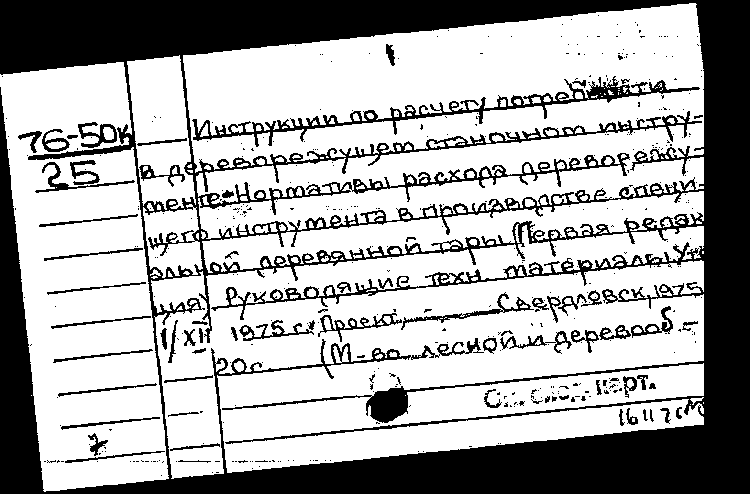 76-50к
25
Инструкции по расчету потребности
в дереворежущем станочном инстру-
менте. Нормативы расхода дереворежу-
щего инструмента в производстве специ-
альной деревянной тары (Первая редак
ция). Руководящие техн. материалы. Утв
1/XII 1975 г. Проект, Свердловск, 1975
20с. (М-во лесной и деревооб-
См. след. карт.
16 11 76